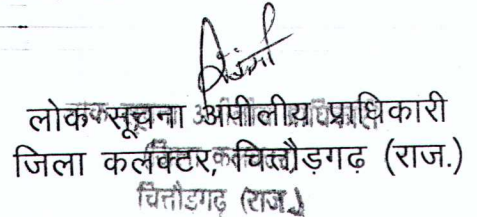 लोक सूचना अपीलीय प्राधिकारी
जिला कलेक्टर, चित्तौड़गढ़ (राज.)
चित्तौडगढ़ (राज.)